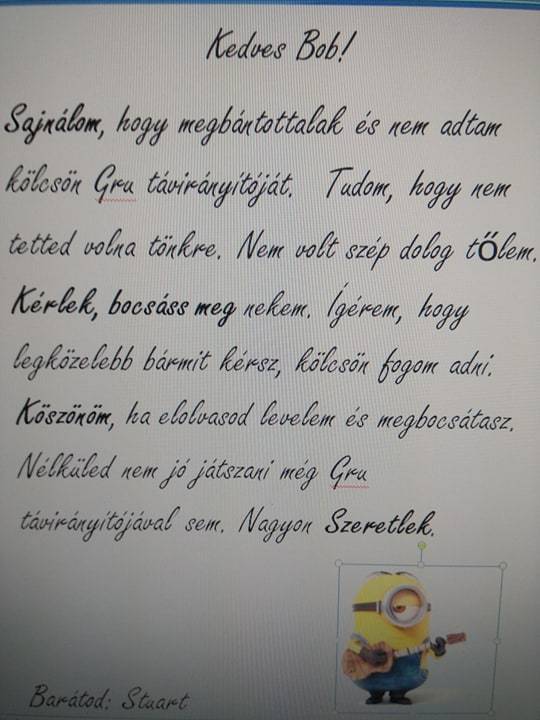 Kedves Bob!
Sajnálom, hogy megbántottalak és nem adtam
kölcsön Gru távirányítóját. Tudom, hogy nem
tetted volna tönkre. Nem volt szép dolog tőlem.
Kérlek, bocsáss meg nekem. Ígérem, hogy
legközelebb bármit kérsz, kölcsön fogom adni.
Köszönöm, ha elolvasod levelem és megbocsátasz.
Nélküled nem jó játszani még Gru
távirányítójával sem. Nagyon Szeretlek.
Barátod: Stuart